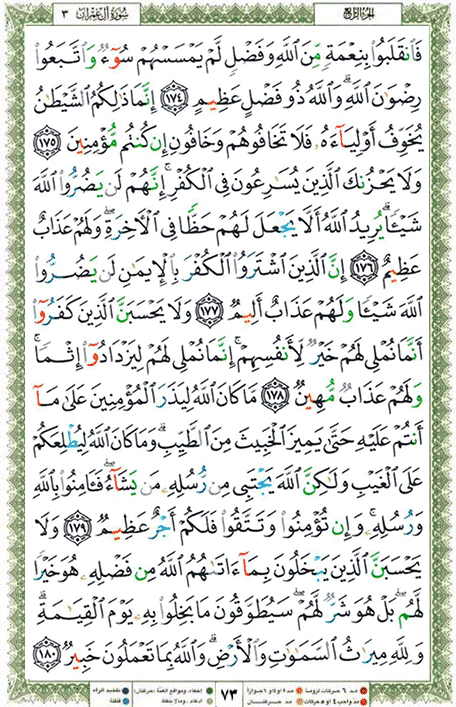 سُورَةُ آلِ عِمْرَان ٣
الجُزْءُ الرَّابِعُ
فَٱنقَلَبُوا۟ بِنِعْمَةٍ مِّنَ ٱللَّهِ وَفَضْلٍ لَّمْ يَمْسَسْهُمْ سُوٓءٌ وَٱتَّبَعُوا۟
رِضْوَٰنَ ٱللَّهِ ۗ وَٱللَّهُ ذُو فَضْلٍ عَظِيمٍ ١٧٤ إِنَّمَا ذَٰلِكُمُ ٱلشَّيْطَٰنُ
يُخَوِّفُ أَوْلِيَآءَهُۥ فَلَا تَخَافُوهُمْ وَخَافُونِ إِن كُنتُم مُّؤْمِنِينَ ١٧٥
وَلَا يَحْزُنكَ ٱلَّذِينَ يُسَٰرِعُونَ فِى ٱلْكُفْرِ ۚ إِنَّهُمْ لَن يَضُرُّوا۟ ٱللَّهَ
شَيْـًٔا ۗ يُرِيدُ ٱللَّهُ أَلَّا يَجْعَلَ لَهُمْ حَظًّا فِى ٱلْءَاخِرَةِ ۖ وَلَهُمْ عَذَابٌ
عَظِيمٌ ١٧٦ إِنَّ ٱلَّذِينَ ٱشْتَرَوُا۟ ٱلْكُفْرَ بِٱلْإِيمَٰنِ لَن يَضُرُّوا۟
ٱللَّهَ شَيْـًٔا وَلَهُمْ عَذَابٌ أَلِيمٌ ١٧٧ وَلَا يَحْسَبَنَّ ٱلَّذِينَ كَفَرُوٓا۟
أَنَّمَا نُمْلِى لَهُمْ خَيْرٌ لِّأَنفُسِهِمْ ۚ إِنَّمَا نُمْلِى لَهُمْ لِيَزْدَادُوٓا۟ إِثْمًا ۚ
وَلَهُمْ عَذَابٌ مُّهِينٌ ١٧٨ مَّا كَانَ ٱللَّهُ لِيَذَرَ ٱلْمُؤْمِنِينَ عَلَىٰ مَآ
أَنتُمْ عَلَيْهِ حَتَّىٰ يَمِيزَ ٱلْخَبِيثَ مِنَ ٱلطَّيِّبِ ۗ وَمَا كَانَ ٱللَّهُ لِيُطْلِعَكُمْ
عَلَى ٱلْغَيْبِ وَلَٰكِنَّ ٱللَّهَ يَجْتَبِى مِن رُّسُلِهِۦ مَن يَشَآءُ ۖ فَـَٔامِنُوا۟ بِٱللَّهِ
وَرُسُلِهِۦ ۚ وَإِن تُؤْمِنُوا۟ وَتَتَّقُوا۟ فَلَكُمْ أَجْرٌ عَظِيمٌ ١٧٩ وَلَا
يَحْسَبَنَّ ٱلَّذِينَ يَبْخَلُونَ بِمَآ ءَاتَىٰهُمُ ٱللَّهُ مِن فَضْلِهِۦ هُوَ خَيْرًا
لَّهُم ۖ بَلْ هُوَ شَرٌّ لَّهُمْ ۖ سَيُطَوَّقُونَ مَا بَخِلُوا۟ بِهِۦ يَوْمَ ٱلْقِيَٰمَةِ ۗ
وَلِلَّهِ مِيرَٰثُ ٱلسَّمَٰوَٰتِ وَٱلْأَرْضِ ۗ وَٱللَّهُ بِمَا تَعْمَلُونَ خَبِيرٌ ١٨٠
٧٣